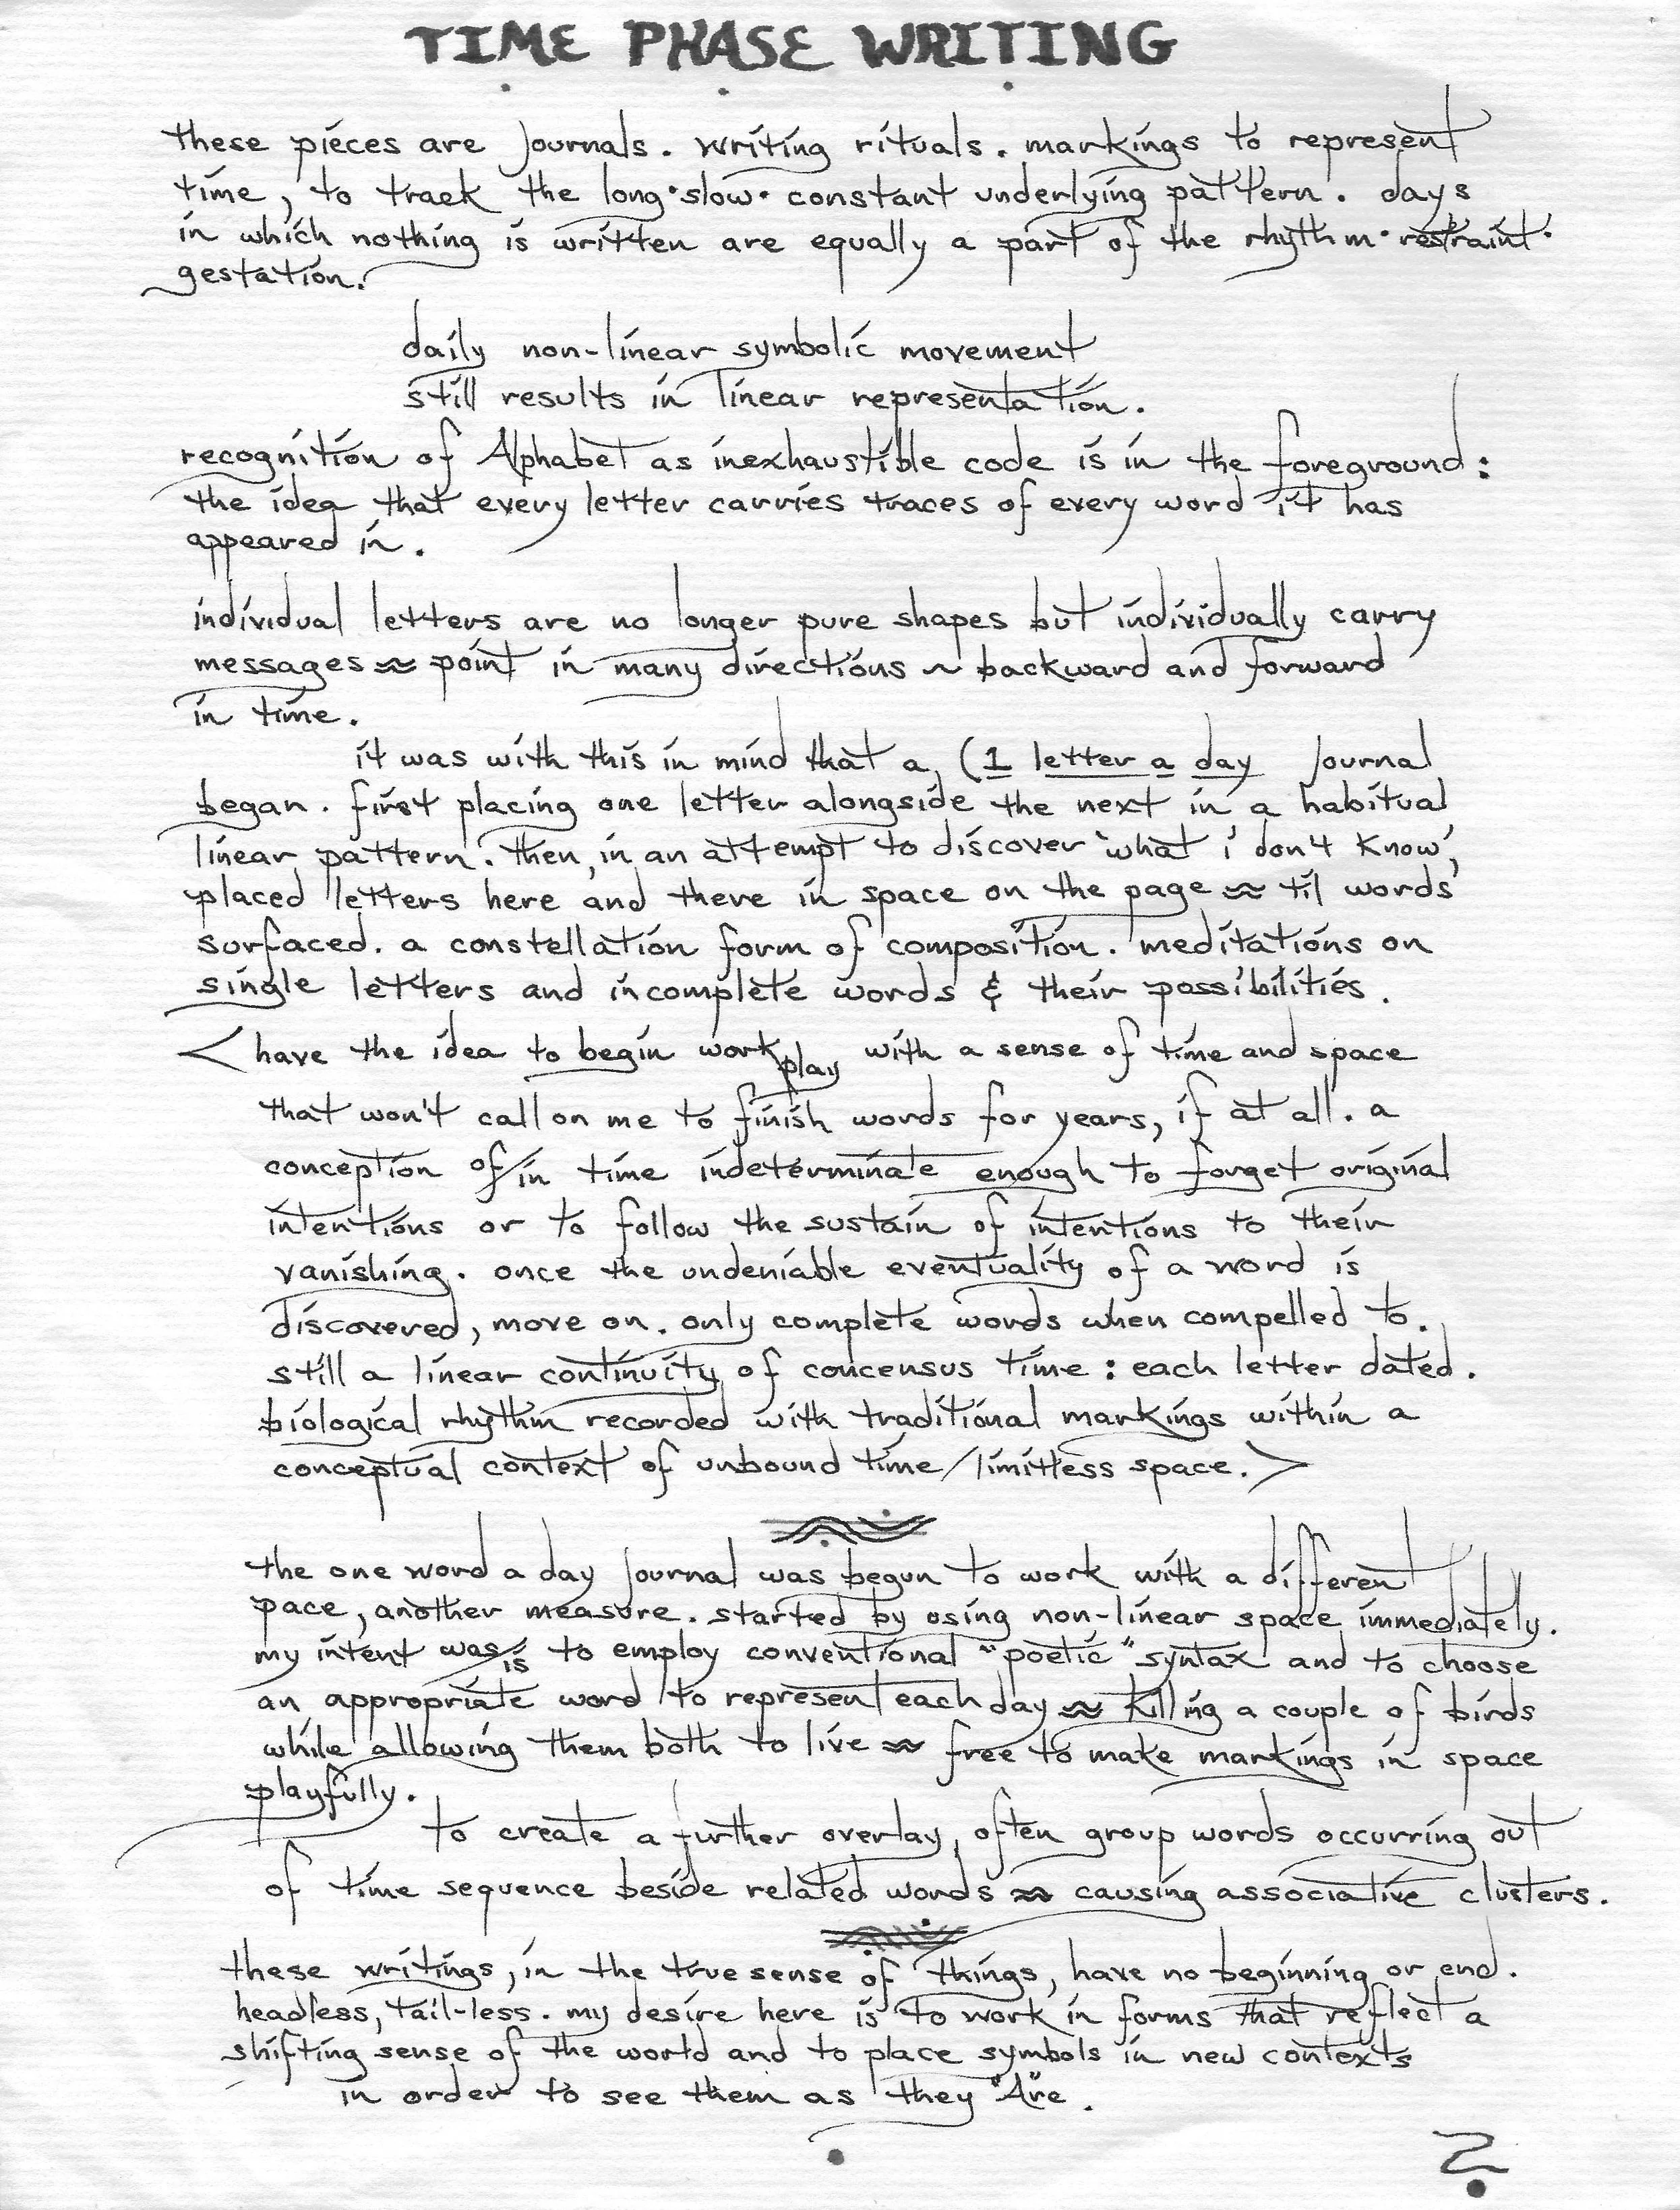 TIME PHASE WRITING
these pieces are journals. writing rituals. markings to represent
time, to track the long·slow· constant underlying pattern. days
in which nothing is written are equally a part of the rhythm·restraint·
gestation.
daily non-linear symbolic movement
still results in linear representation.
recognition of Alphabet as inexhaustible code is in the foreground:
the idea that every letter carries traces of every word it has
appeared in.
individual letters are no longer pure shapes but individually carry
messages ≈ point in many directions ~ backward and forward
in time.
it was with this in mind that a (1 letter a day journal
began. first placing one letter alongside the next in a habitual
linear pattern. then, in an attempt to discover 'what i don't know',
placed letters here and there in space on the page ≈ til words
surfaced. a constellation form of composition. meditations on
single letters and incomplete words & their possibilities.
< have the idea to begin work play with a sense of time and space
that won't call on me to finish words for years, if at all. a
conception of/in time indeterminate enough to forget original
intentions or to follow the sustain of intentions to their
vanishing. once the undeniable eventuality of a word is
discovered, move on. only complete words when compelled to.
still a linear continuity of concensus time: each letter dated.
biological rhythm recorded with traditional markings within a
conceptual context of unbound time/limitless space. >
the one word a day journal was begun to work with a different
pace, another measure. started by using non-linear space immediately.
my intent was/is to employ conventional "poetic" syntax and to choose
an appropriate word to represent each day ≈ killing a couple of birds
while allowing them both to live ≈ free to make markings in space
playfully.
to create a further overlay, often group words occurring out
of time sequence beside related words ≈ causing associative clusters.
these writings, in the true sense of things, have no beginning or end.
headless, tail-less. my desire here is to work in forms that reflect a
shifting sense of the world and to place symbols in new contexts
in order to see them as they "Are.